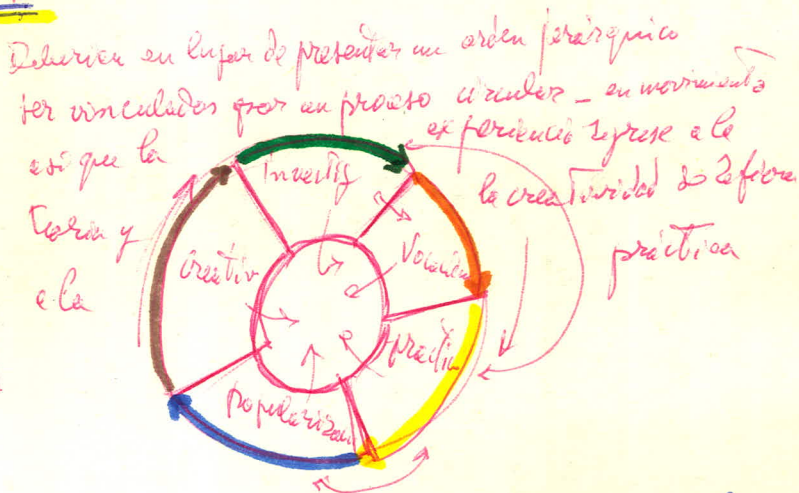 Deberían en lugar de presentar un orden jerárquico
ser vinculados por un proceso circular - en movimiento
así que la experiencia regrese a la
teoría y la creatividad se refiera
a la práctica
Investig
Creativ
practic
popularizac